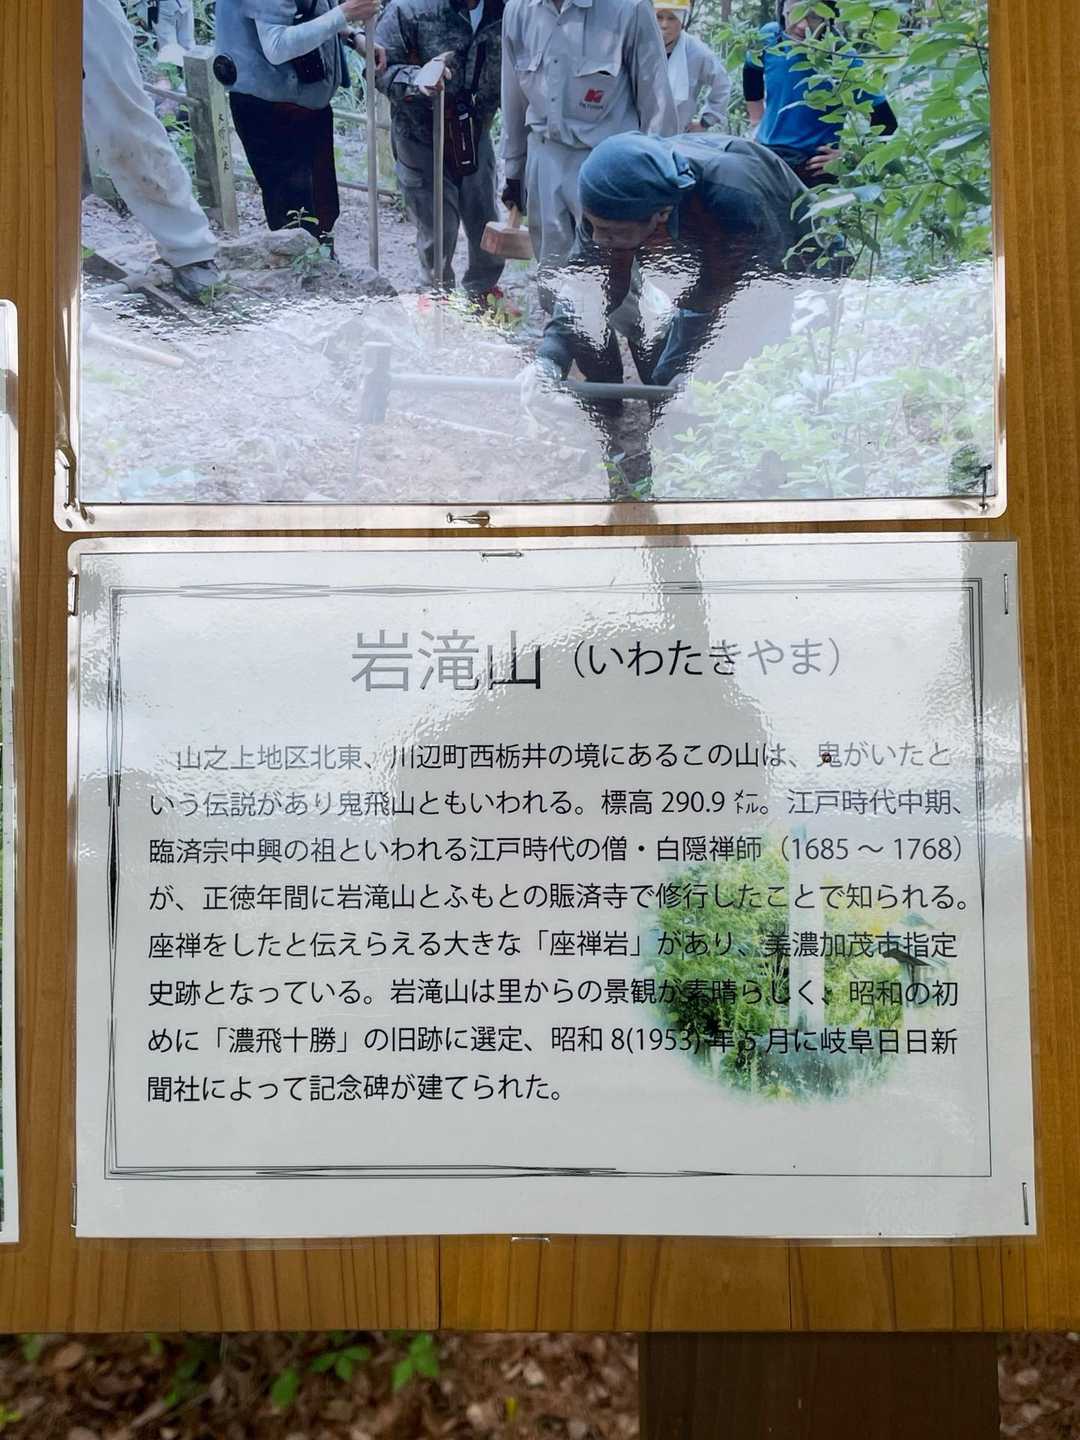 岩滝山（いわたきやま）
山之上地区北東、川辺町西栃井の境にあるこの山は、鬼がいたと
いう伝説があり鬼飛山ともいわれる。標高 290.9 ㍍。江戸時代中期、
臨済宗中興の祖といわれる江戸時代の僧・白隠禅師（1685 〜 1768）
が、正徳年間に岩滝山とふもとの賑済寺で修行したことで知られる。
座禅をしたと伝えらえる大きな「座禅岩」があり、美濃加茂市指定
史跡となっている。岩滝山は里からの景観が素晴らしく、昭和の初
めに「濃飛十勝」の旧跡に選定、昭和 8(1953) 年 5 月に岐阜日日新
聞社によって記念碑が建てられた。